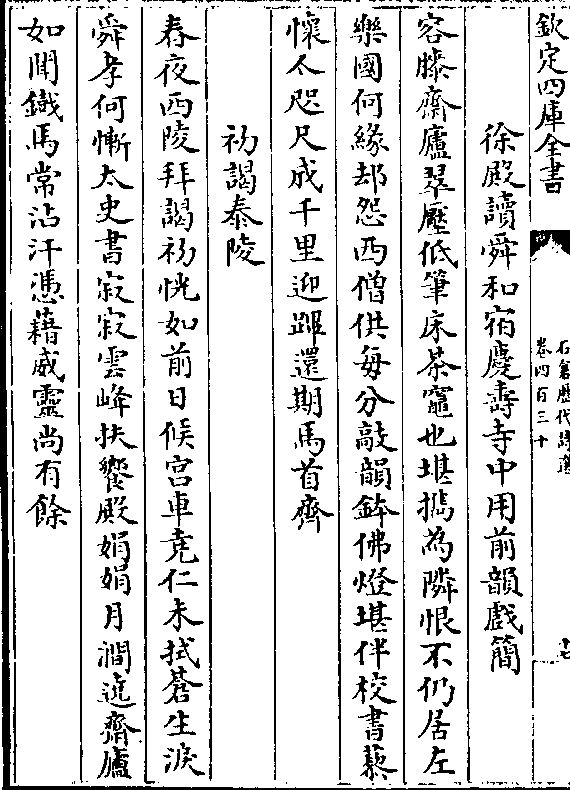 欽定四庫全書
石倉歷代詩選
卷四百三十
徐殿讀舜和宿慶壽寺中用前韻戲簡
容膝齋廬翠壓低筆床茶竈也堪攜為隣恨不仍居左
樂國何緣却怨西僧供每分敲韻鉢佛燈堪伴校書藜
懷人咫尺成千里迎蹕還期馬首齊
初謁泰陵
春夜西陵拜謁初恍如前日候宮車堯仁未拭蒼生淚
舜孝何慚太史書寂寂雲峰扶饗殿娟娟月澗遶齋廬
如聞鐵馬常沾汗憑藉威靈尚有餘